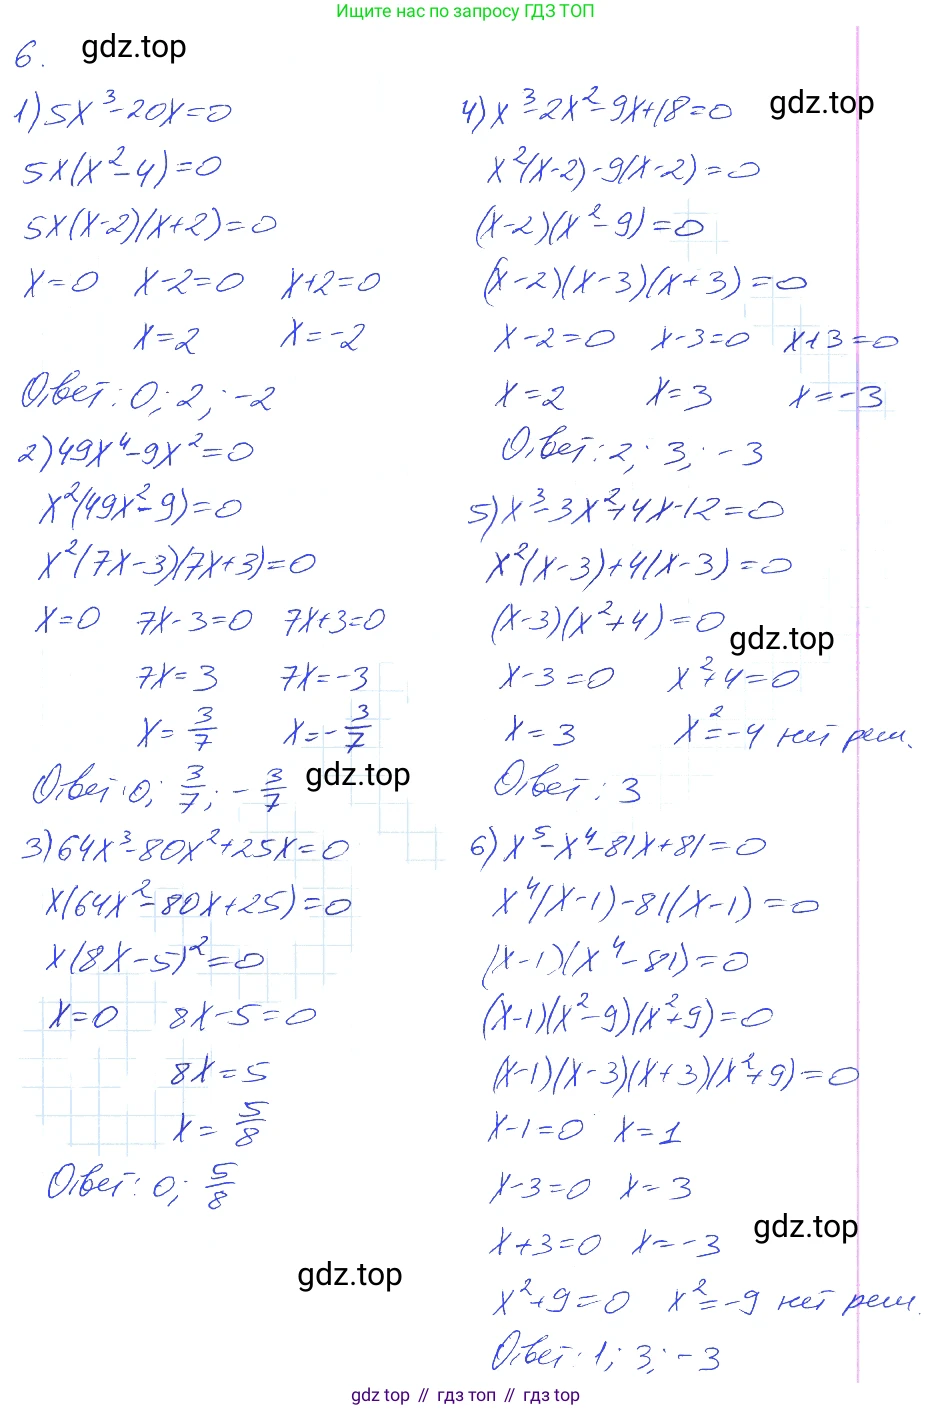 Ищите нас по запросу ГДЗ ТОП
6.
gdz.top
1) 5x³-20x=0
5x(x²-4)=0
5x(x-2)(x+2)=0
x=0 x-2=0 x+2=0
x=2 x=-2
Ответ: 0; 2; -2
2) 49x⁴-9x²=0
x²(49x²-9)=0
x²(7x-3)(7x+3)=0
x=0 7x-3=0 7x+3=0
7x=3 7x=-3
x=3/7 x=-3/7
Ответ: 0; 3/7; -3/7
gdz.top
3) 64x³-80x²+25x=0
x(64x²-80x+25)=0
x(8x-5)²=0
x=0 8x-5=0
8x=5
x=5/8
Ответ: 0; 5/8
gdz.top
4) x³-2x²-9x+18=0
gdz.top
x²(x-2)-9(x-2)=0
(x-2)(x²-9)=0
(x-2)(x-3)(x+3)=0
x-2=0 x-3=0 x+3=0
x=2 x=3 x=-3
Ответ: 2; 3; -3
5) x³-3x²+4x-12=0
x²(x-3)+4(x-3)=0
(x-3)(x²+4)=0
gdz.top
x-3=0 x²+4=0
x=3 x²=-4 нет реш.
Ответ: 3
6) x⁵-x⁴-81x+81=0
x⁴(x-1)-81(x-1)=0
(x-1)(x⁴-81)=0
(x-1)(x²-9)(x²+9)=0
(x-1)(x-3)(x+3)(x²+9)=0
x-1=0 x=1
x-3=0 x=3
gdz.top
x+3=0 x=-3
x²+9=0 x²=-9 нет реш.
Ответ: 1; 3; -3
gdz.top // гдз топ // gdz.top